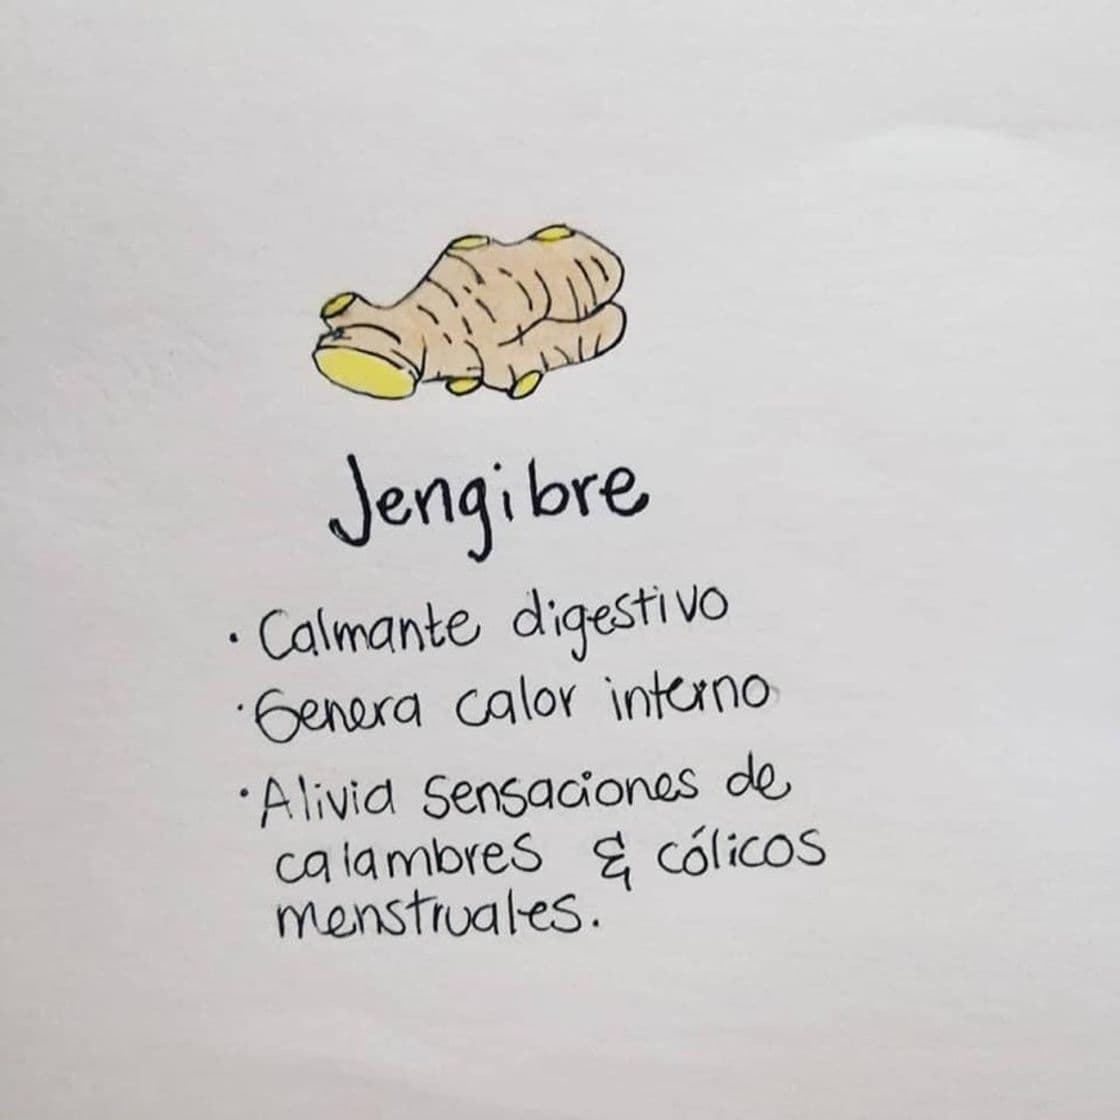 Jengibre
· Calmante digestivo
· Genera calor interno
· Alivia sensaciones de
calambres & cólicos
menstruales.